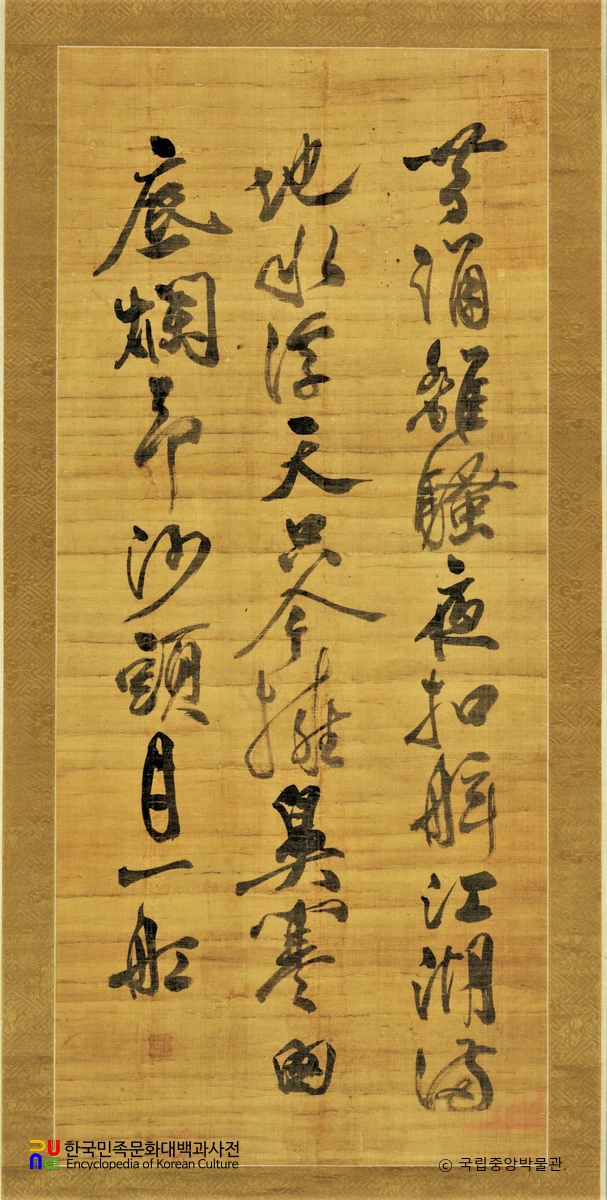 昔誦離騷夜扣舷江湖滿
地水浮天只今擁鼻寒囪
底爛却沙頭月一船
한국민족문화대백과사전
Encyclopedia of Korean Culture
© 국립중앙박물관.